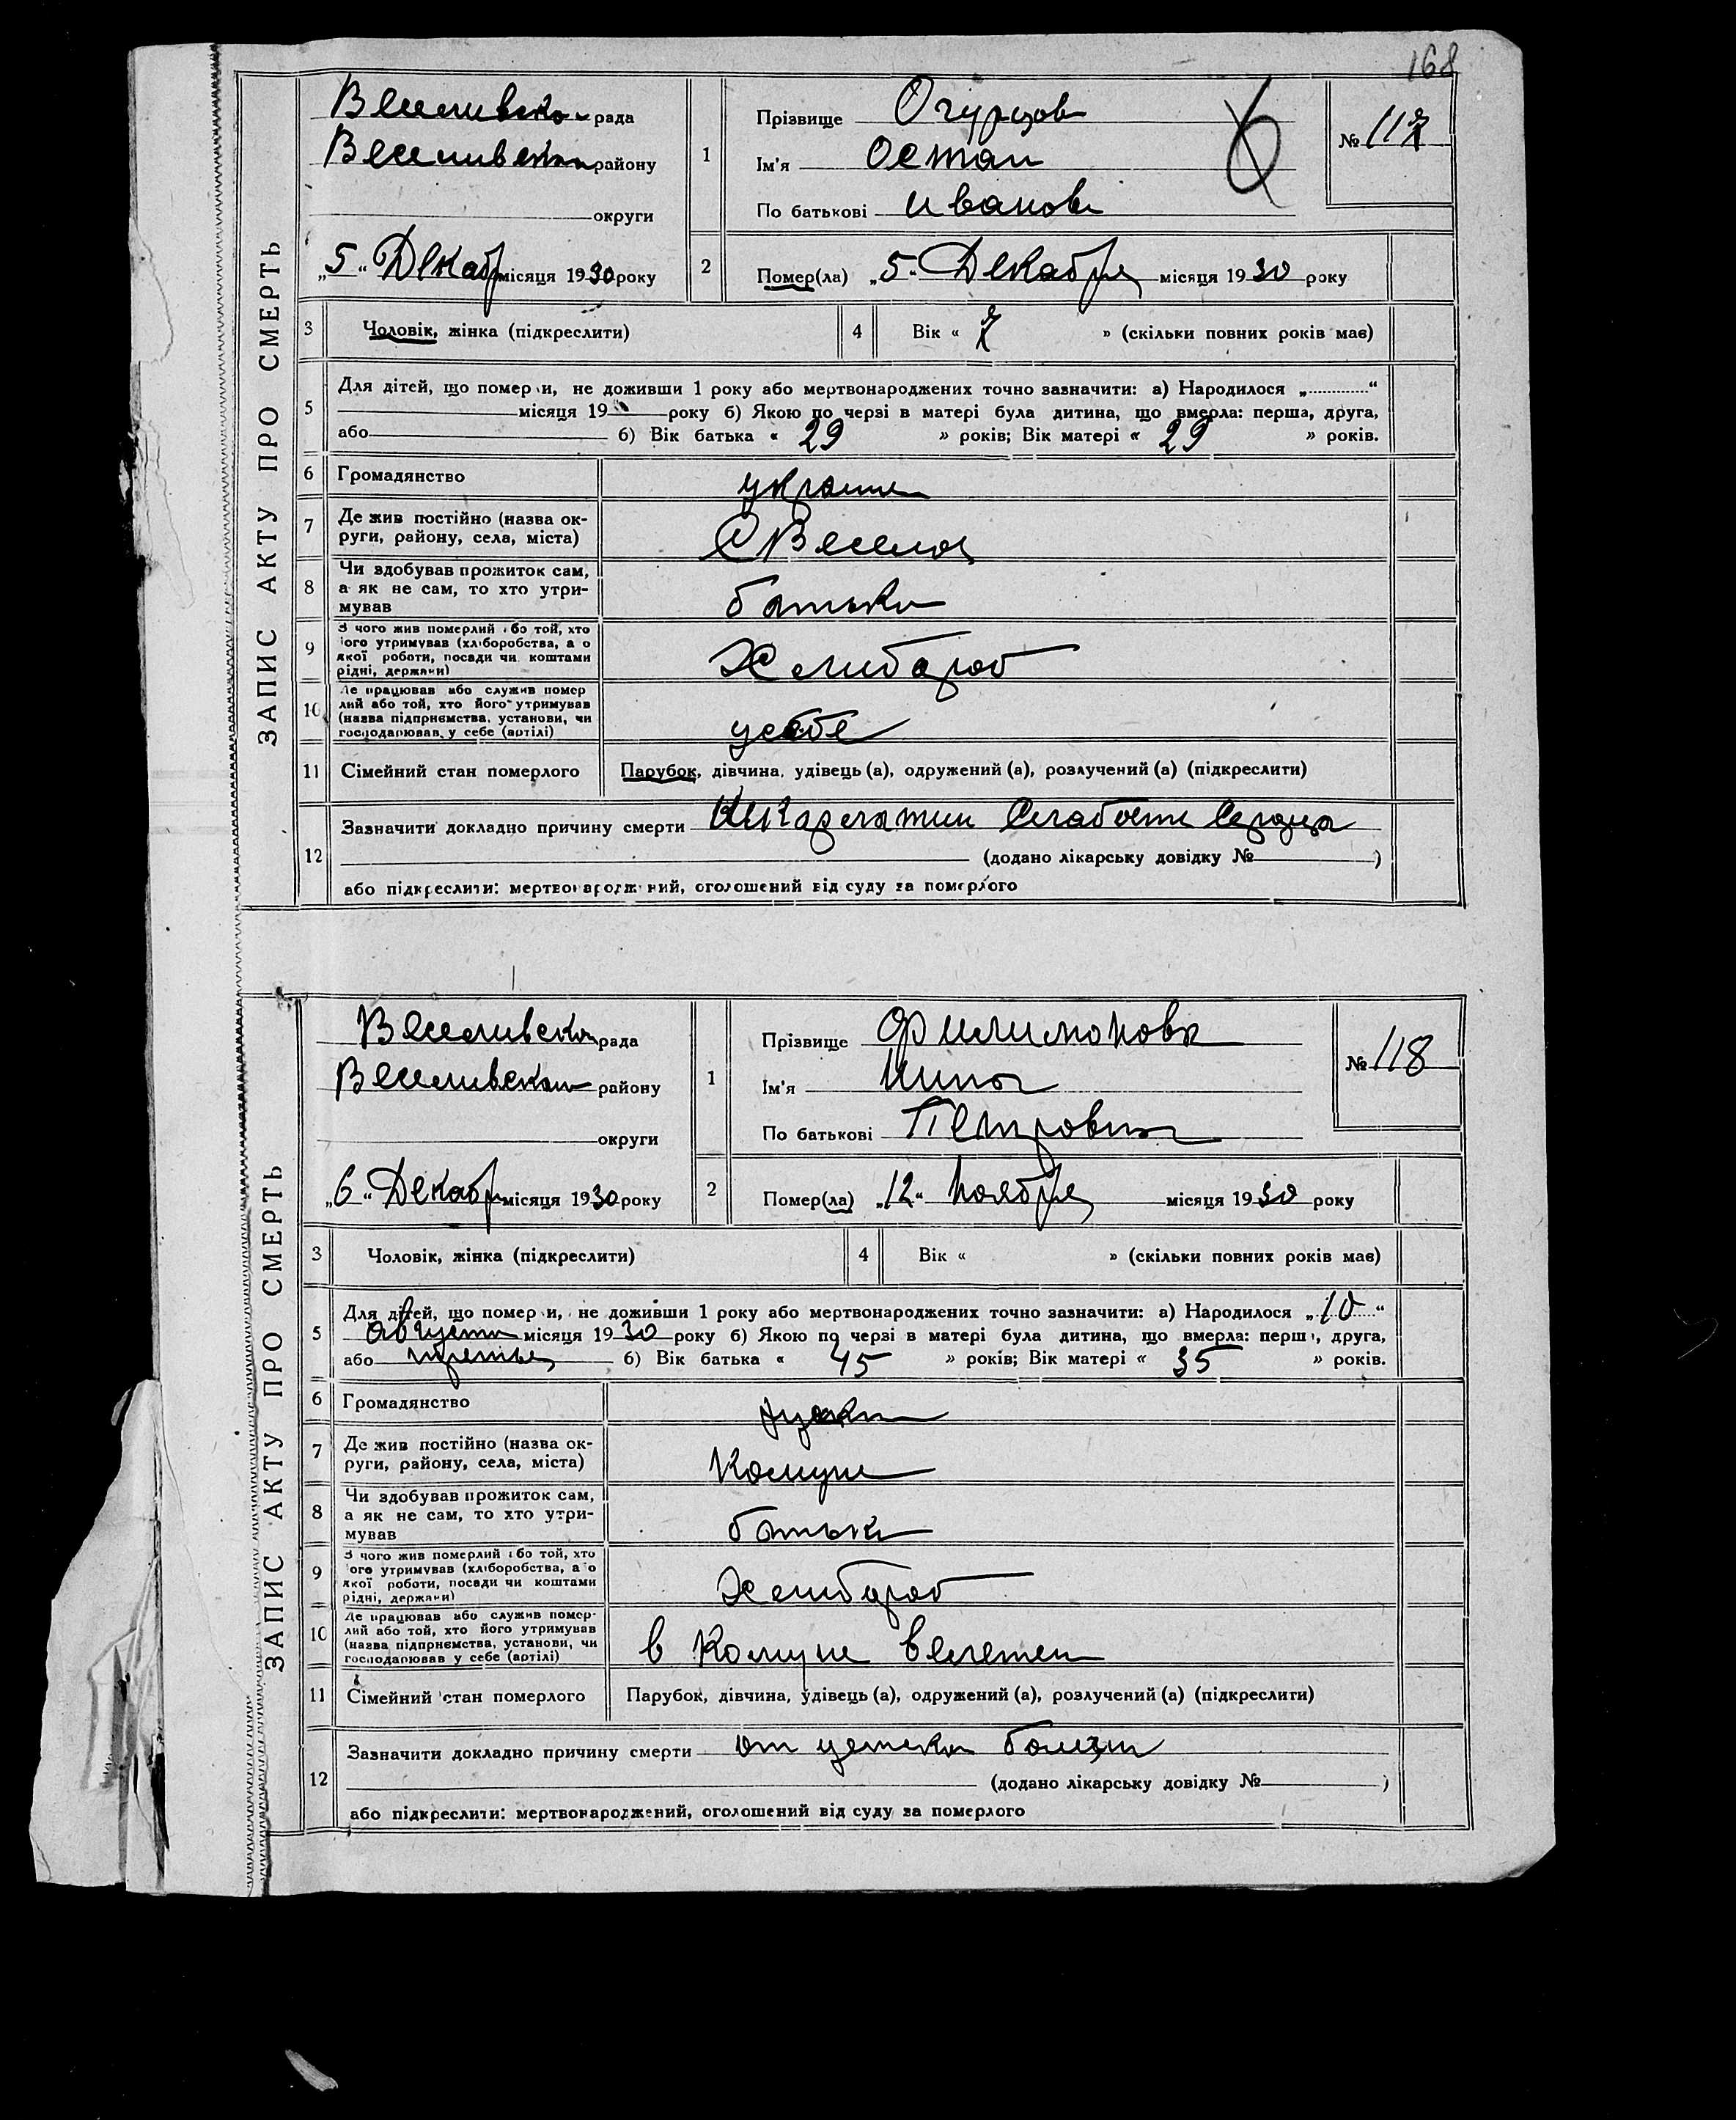 168
ЗАПИС АКТУ ПРО СМЕРТЬ
Веселивско рада
Веселивскаи району
округи
„5“ Декабр місяця 1930 року
1
Прізвище Огурцов
Ім'я Остап
По батькові иванови
№ 117
2
Помер(ла) „5“ Декабря місяця 1930 року
3 Чоловік, жінка (підкреслити)
4 Вік « 7 » (скільки повних років має)
5 Для дітей, що померли, не доживши 1 року або мертвонароджених точно зазначити: а) Народилося „ “
місяця 19 року б) Якою по черзі в матері була дитина, що вмерла: перша, друга,
або б) Вік батька « 29 » років; Вік матері « 29 » років.
6 Громадянство украине
7 Де жив постійно (назва ок-
руги, району, села, міста) С Веселое
8 Чи здобував прожиток сам,
а як не сам, то хто утри-
мував батько
9 З чого жив померлий або той, хто
його утримував (хліборобства, або
якої роботи, посади чи коштами
рідні, держави) Хлибороб
10 Де працював або служив помер
лий або той, хто його утримував
(назва підприємства, установи, чи
господарював у себе (артілі) усебе
11 Сімейний стан померлого Парубок, дівчина, удівець (а), одружений (а), розлучений (а) (підкреслити)
12 Зазначити докладно причину смерти Слабости Сердца
(додано лікарську довідку № )
або підкреслити: мертвонароджений, оголошений від суду за померлого
ЗАПИС АКТУ ПРО СМЕРТЬ
Веселивско рада
Веселивскаи району
округи
„6“ Декабр місяця 1930 року
1
Прізвище Филимонова
Ім'я Нина
По батькові Петровна
№ 118
2
Помер(ла) „12“ Ноября місяця 1930 року
3 Чоловік, жінка (підкреслити)
4 Вік « » (скільки повних років має)
5 Для дітей, що померли, не доживши 1 року або мертвонароджених точно зазначити: а) Народилося „10“
Августа місяця 1930 року б) Якою по черзі в матері була дитина, що вмерла: перша, друга,
або третья б) Вік батька « 45 » років; Вік матері « 35 » років.
6 Громадянство руски
7 Де жив постійно (назва ок-
руги, району, села, міста) Комуне
8 Чи здобував прожиток сам,
а як не сам, то хто утри-
мував батьки
9 З чого жив померлий або той, хто
його утримував (хліборобства, або
якої роботи, посади чи коштами
рідні, держави) Хлибороб
10 Де працював або служив помер-
лий або той, хто його утримував
(назва підприємства, установи, чи
господарював у себе (артілі) в Комуне
11 Сімейний стан померлого Парубок, дівчина, удівець (а), одружений (а), розлучений (а) (підкреслити)
12 Зазначити докладно причину смерти от
(додано лікарську довідку № )
або підкреслити: мертвонароджений, оголошений від суду за померлого